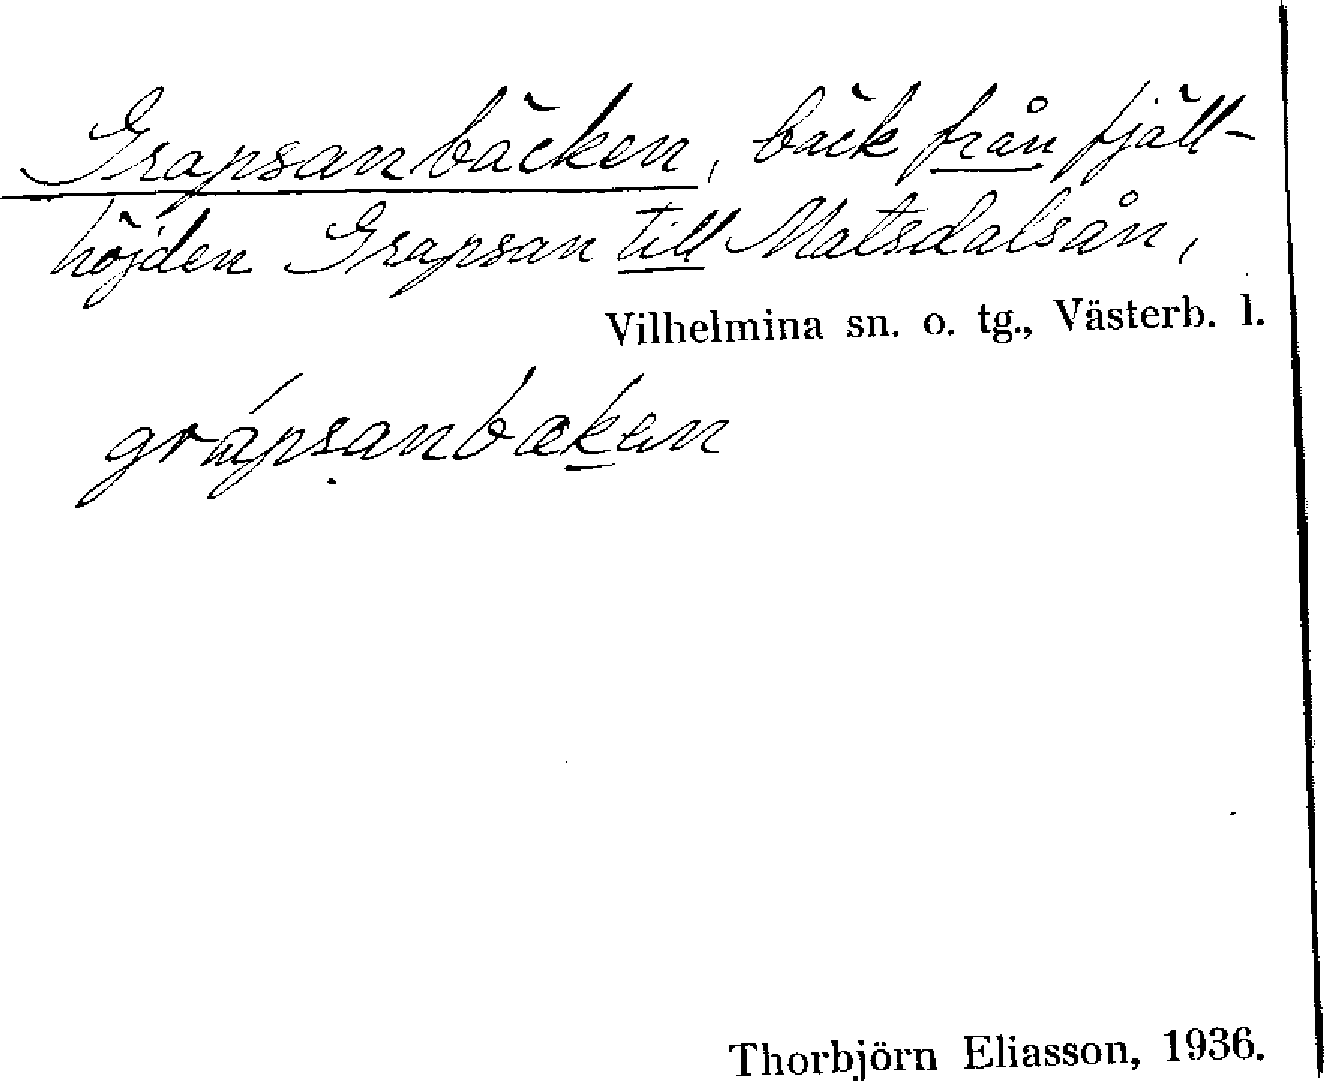 Grapsanbäcken, bäck från fjäll-
höjden Grapsan till Matsdalsån,
Vilhelmina sn. o. tg., Västerb. l.
grápsanbækan
Thorbjörn Eliasson, 1936.